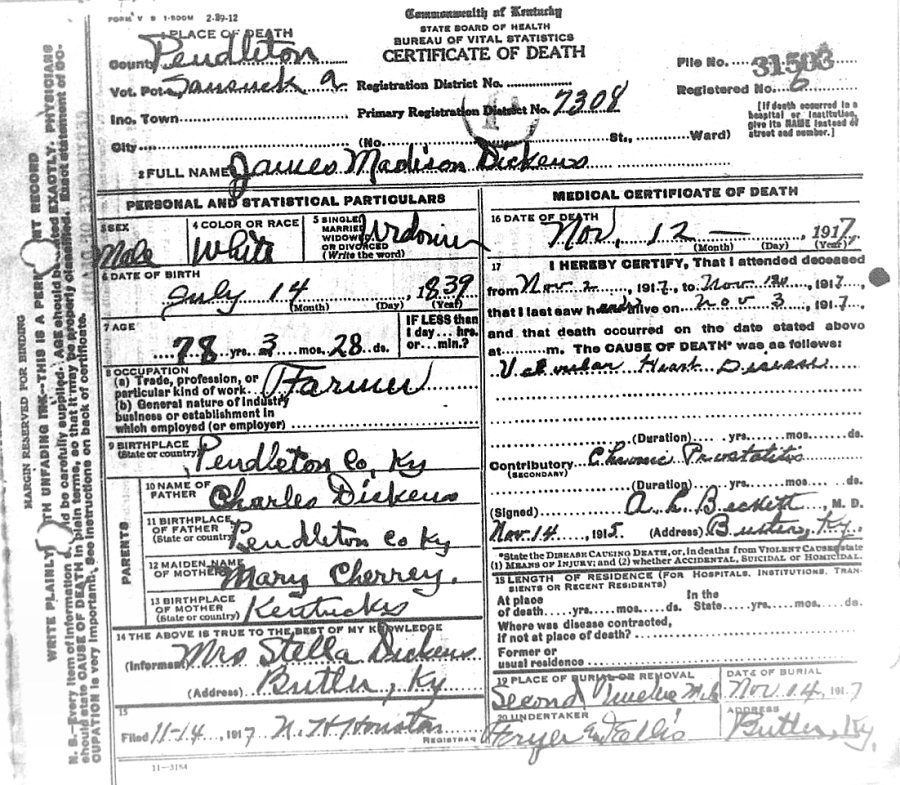 FORM V S 1-500M 2-29-12
Commonwealth of Kentucky
STATE BOARD OF HEALTH
BUREAU OF VITAL STATISTICS
CERTIFICATE OF DEATH
1 PLACE OF DEATH
County Pendleton
Vot. Pct. 2
Inc. Town
City
Registration District No.
Primary Registration District No. 7308
(No. St., Ward)
File No. 31503
Registered No. 6
[If death occurred in a
hospital or institution,
give its NAME instead of
street and number.]
2 FULL NAME James Madison Dickens
PERSONAL AND STATISTICAL PARTICULARS
3 SEX
Male
4 COLOR OR RACE
White
5 SINGLE,
MARRIED
WIDOWED
OR DIVORCED
(Write the word)
Widower
6 DATE OF BIRTH
July 14 1839
(Month) (Day) (Year)
7 AGE
78 yrs. 3 mos. 28 ds.
IF LESS than
1 day... hrs.
or... min.?
8 OCCUPATION
(a) Trade, profession, or
particular kind of work Farmer
(b) General nature of industry
business or establishment in
which employed (or employer)
9 BIRTHPLACE
(State or country) Pendleton Co, Ky
PARENTS
10 NAME OF
FATHER Charles Dickens
11 BIRTHPLACE
OF FATHER
(State or country) Pendleton Co Ky
12 MAIDEN NAME
OF MOTHER Mary Cherrey.
13 BIRTHPLACE
OF MOTHER
(State or country) Kentucky
14 THE ABOVE IS TRUE TO THE BEST OF MY KNOWLEDGE
(Informant) Mrs Stella Dickens
(Address) Butler, Ky
15
Filed 11-14, 1917 N. H. Houston
REGISTRAR
11-3184
MEDICAL CERTIFICATE OF DEATH
16 DATE OF DEATH
Nov. 12 — , 1917
(Month) (Day) (Year)
17 I HEREBY CERTIFY, That I attended deceased
from Nov 2, 1917, to Nov 12, 1917,
that I last saw alive on Nov 3, 1917,
and that death occurred on the date stated above
at m. The CAUSE OF DEATH* was as follows:
Valvular Heart Disease
(Duration) yrs. mos. ds.
Contributory Chronic Prostatitis
(SECONDARY)
(Duration) yrs. mos. ds.
(Signed) A. L. Beckett, M. D.
Nov. 14, 1915 (Address) Butler, Ky.
*State the DISEASE CAUSING DEATH, or, in deaths from VIOLENT CAUSES state
(1) MEANS OF INJURY; and (2) whether ACCIDENTAL, SUICIDAL or HOMICIDAL.
18 LENGTH OF RESIDENCE (FOR HOSPITALS, INSTITUTIONS, TRAN-
SIENTS OR RECENT RESIDENTS)
At place In the
of death yrs. mos. ds. State yrs. mos. ds.
Where was disease contracted,
if not at place of death?
Former or
usual residence
19 PLACE OF BURIAL OR REMOVAL
Second Twelve Mile
DATE OF BURIAL
Nov 14, 1917
20 UNDERTAKER
Fryer
ADDRESS
Butler, Ky.
MARGIN RESERVED FOR BINDING
WRITE PLAINLY WITH UNFADING INK—THIS IS A PERMANENT RECORD
N. B.—Every item of information should be carefully supplied. AGE should be stated EXACTLY. PHYSICIANS
should state CAUSE OF DEATH in plain terms, so that it may be properly classified. Exact statement of OC-
CUPATION is very important. See instructions on back of certificate.